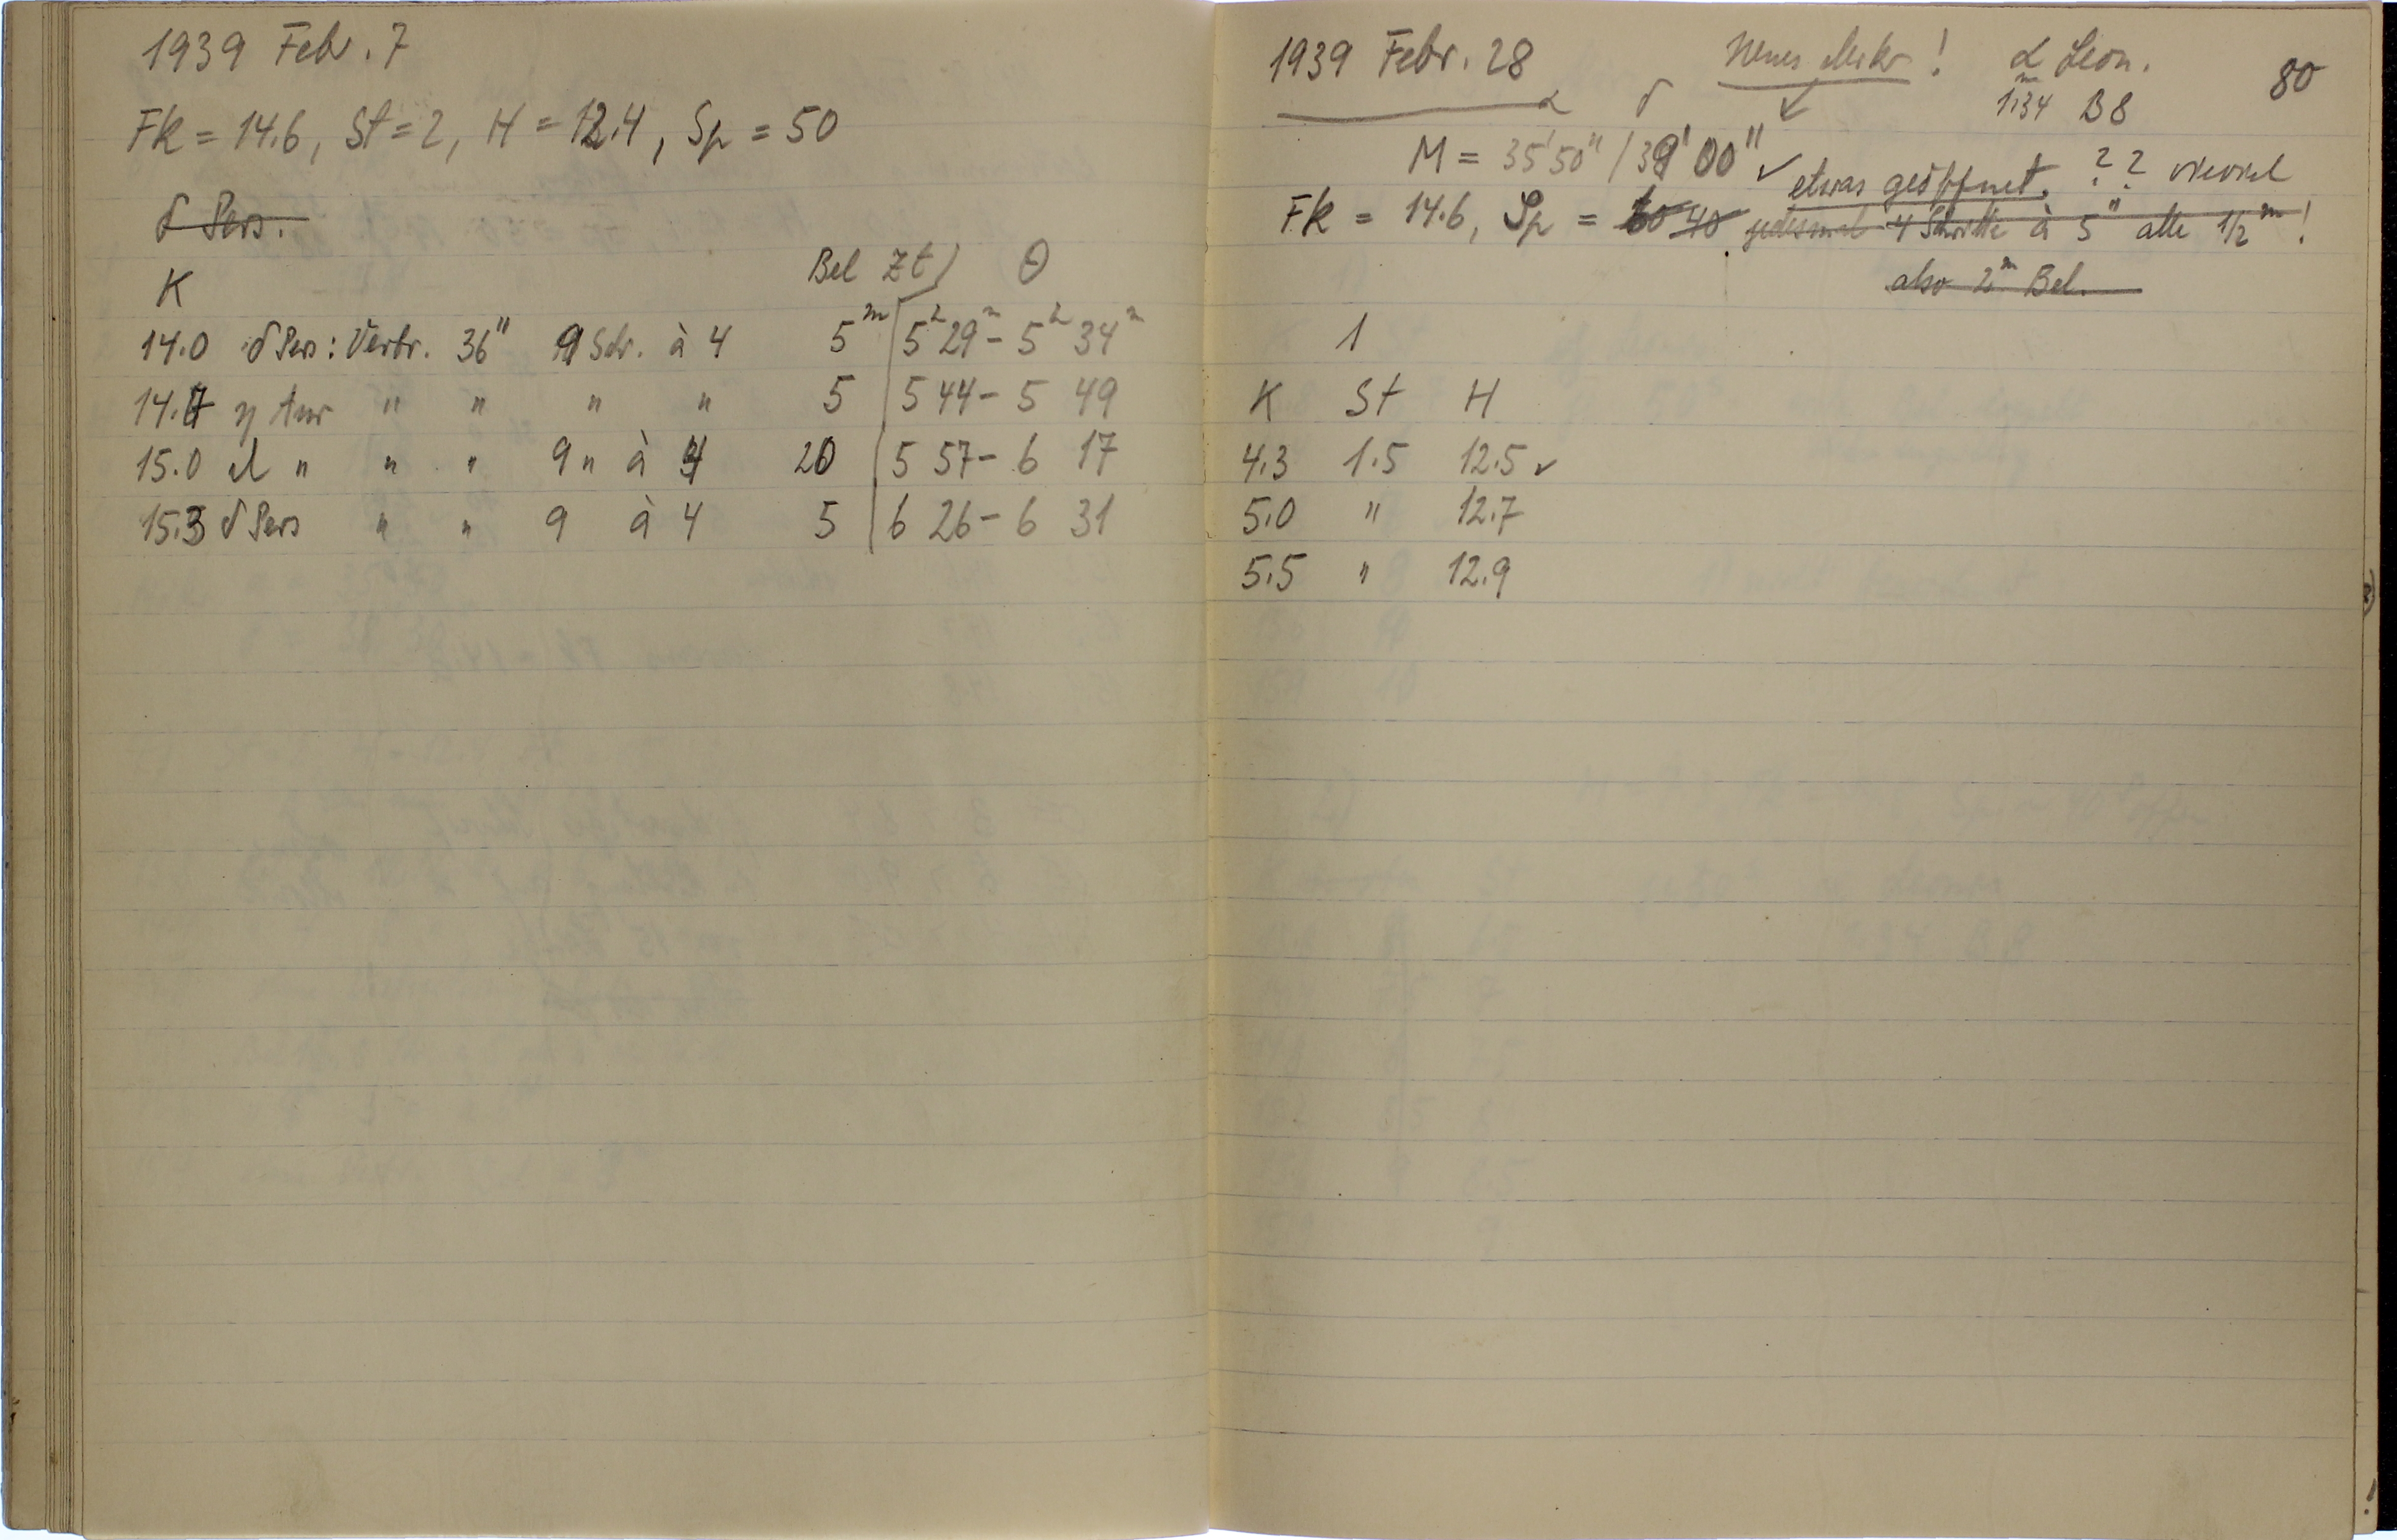 1939 Febr. 7
Fk = 14.6, St = 2, H = 12.4, Sp = 50
δ Pers.
Bel Zt) Θ
K
14.0 δ Pers: Verbr. 36" 9 Schr. à 4 5ᵐ 5ʰ 29ᵐ - 5ʰ 34ᵐ
14.7 η tau " " " " 5 5 44 - 5 49
15.0 " " " 9 " à 4 20 5 57 - 6 17
15.3 δ Pers " " 9 à 4 5 6 26 - 6 31
80
1939 Febr. 28 Neues Mikr! α Leon.
α δ 1ᵐ.34 B8
M = 35'50" / 39'00" ✓ etwas geöffnet. ? ? wieviel
Fk = 14.6, Sp = 40 jedesmal 4 Schritte à 5" alle 1/2ᵐ!
also 2ᵐ Bel.
1
K St H
4.3 1.5 12.5 ✓
5.0 " 12.7
5.5 " 12.9